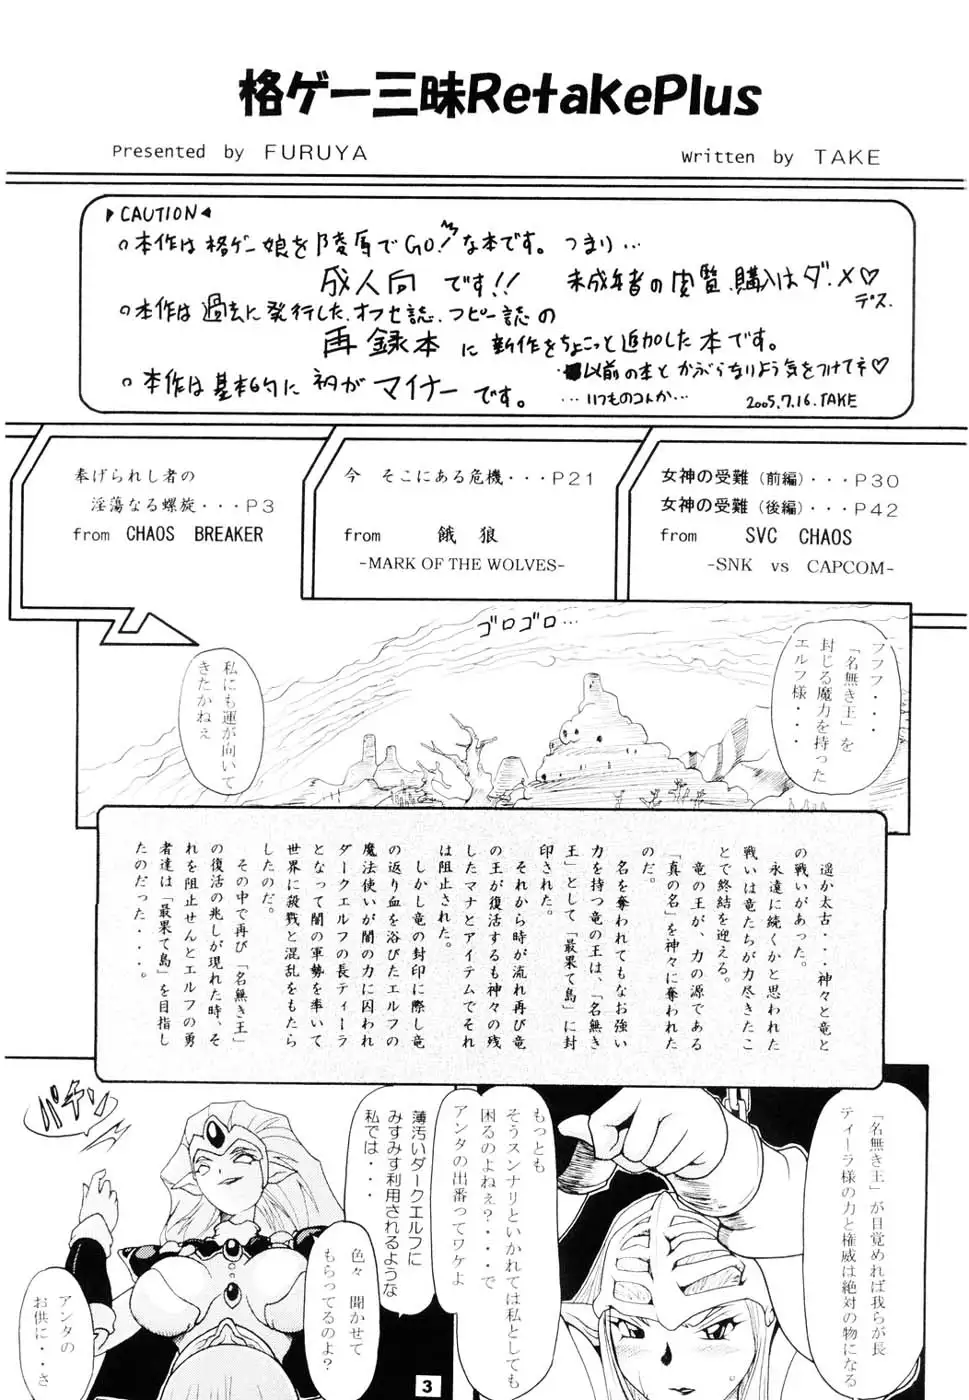 格ゲー三昧RetakePlus
Presented by FURUYA
Written by TAKE
▶CAUTION◀
○本作は格ゲー娘を陵辱でGO!な本です。つまり…
成人向です!! 未成年者の閲覧、購入はダ.メ♡
デス.
○本作は過去に発行した、オフセ誌、コピー誌の
再録本に新作をちょこっと追加した本です。
以前の本とかぶらなりよう気をつけてネ♡
○本作は基本的に初がマイナーです。
…いつものコんか…
2005.7.16.TAKE
奉げられし者の
淫蕩なる螺旋・・・P3
from CHAOS BREAKER
今 そこにある危機・・・P21
from 餓 狼
-MARK OF THE WOLVES-
女神の受難(前編)・・・P30
女神の受難(後編)・・・P42
from SVC CHAOS
-SNK vs CAPCOM-
ゴロゴロ…
フフフ・・・
「名無き王」を
封じる魔力を持った
エルフ様・・・
私にも運が向いて
きたかねぇ
遥か太古・・・神々と竜と
の戦いがあった。
永遠に続くかと思われた
戦いは竜たちが力尽きたこ
とで終結を迎える。
竜の王が、力の源である
「真の名」を神々に奪われた
のだ。
名を奪われてもなお強い
力を持つ竜の王は、「名無き
王」として「最果て島」に封
印された。
それから時が流れ再び竜
の王が復活するも神々の残
したマナとアイテムでそれ
は阻止された。
しかし竜の封印に際し竜
の返り血を浴びたエルフの
魔法使いが闇の力に囚われ
ダークエルフの長ティーラ
となって闇の軍勢を率いて
世界に殺戮と混乱をもたら
したのだ。
その中で再び「名無き王」
の復活の兆しが現れた時、そ
れを阻止せんとエルフの勇
者達は「最果て島」を目指し
たのだった・・・・。
「名無き王」が目覚めれば我らが長
ティーラ様の力と権威は絶対の物になる
もっとも
そうスンナリといかれては私としても
困るのよねぇ?・・・で
アンタの出番ってワケよ
薄汚いダークエルフに
みすみす利用されるような
私では・・・
パチン
色々 聞かせて
もらってるのよ?
アンタの
お供に・・さ
3